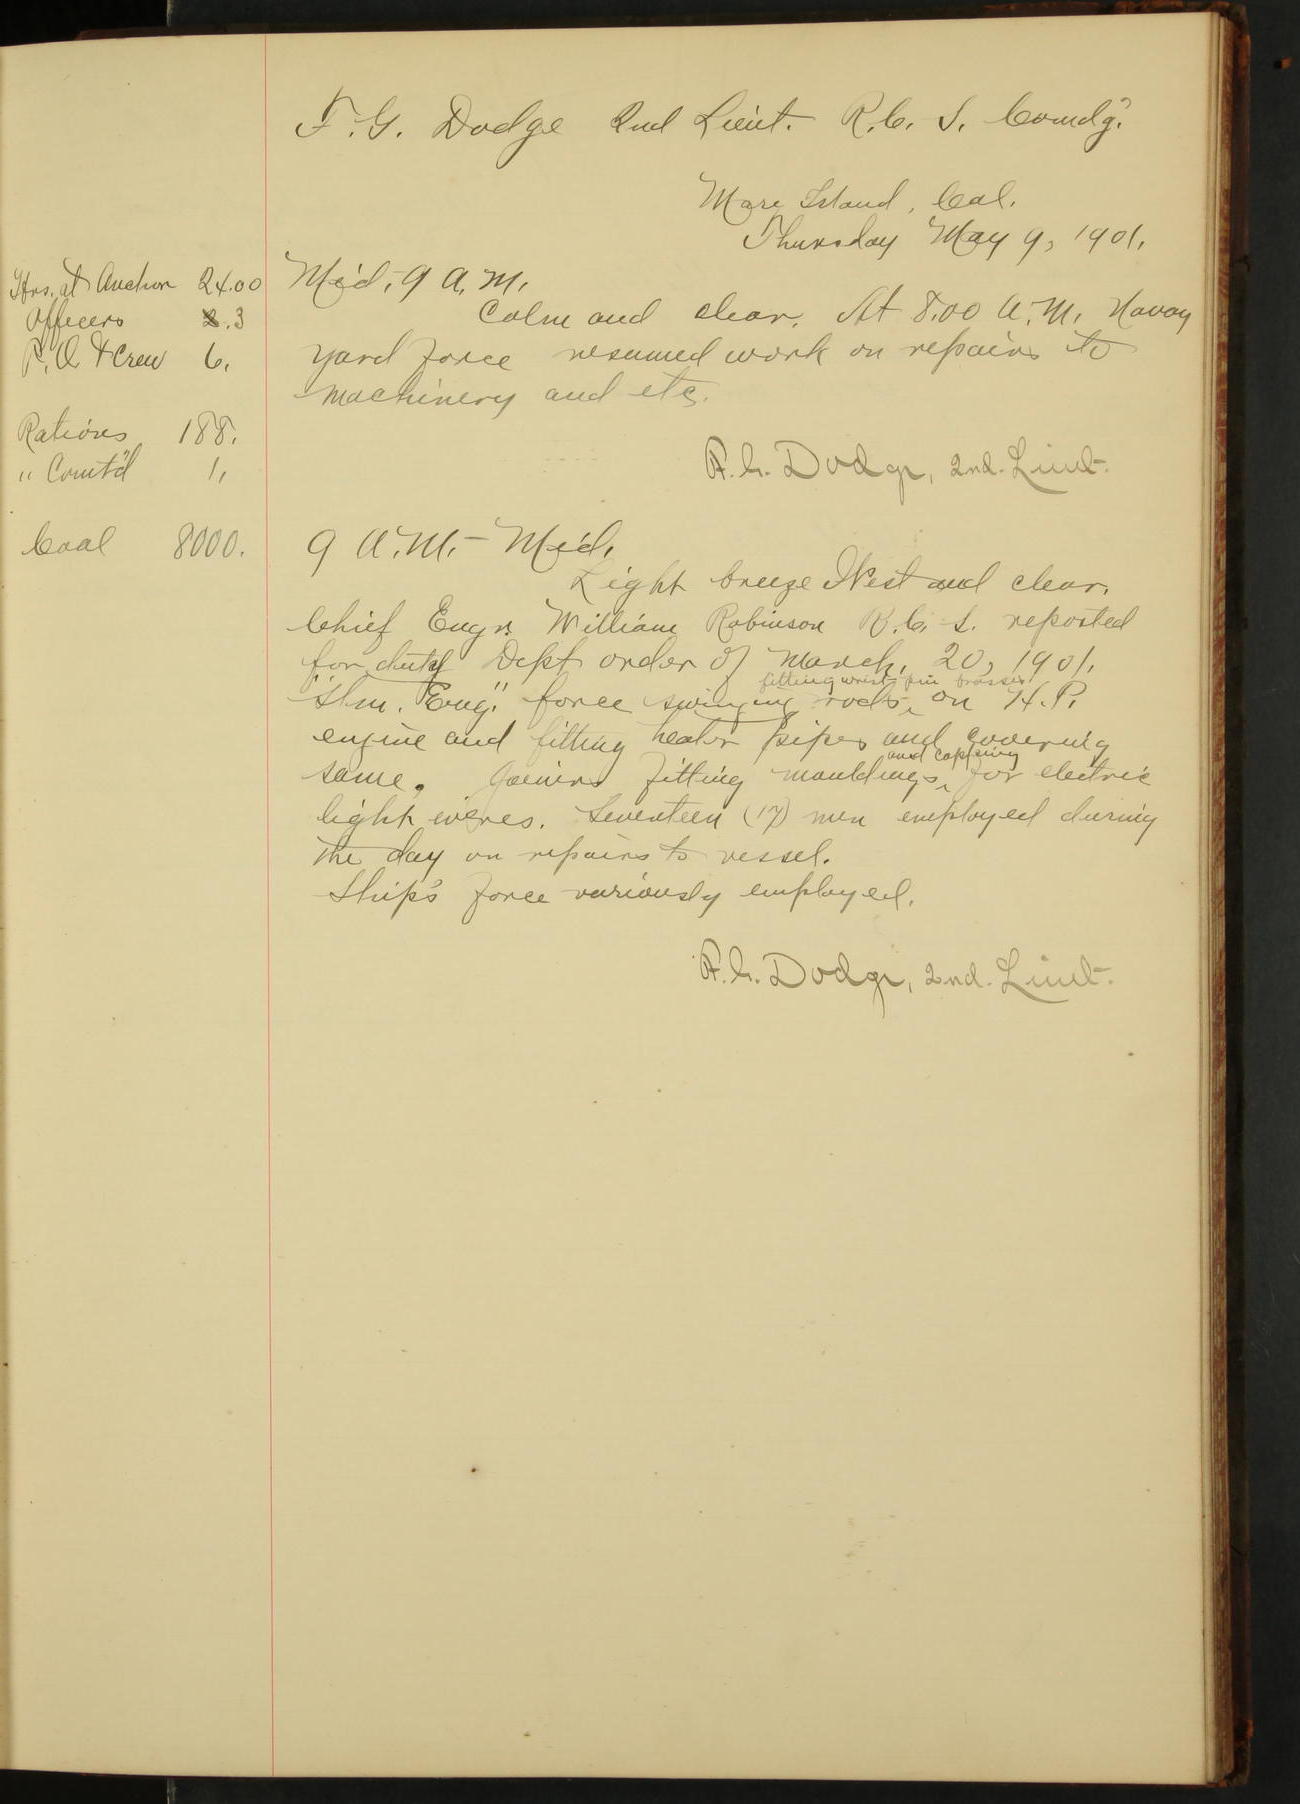 F. G. Dodge 2nd Lieut. R. C. S. Comdg.
Mare Island, Cal.
Thursday May 9, 1901.
Hrs. at Anchor 24.00
Officers 3
P. O. & Crew 6.
Rations 188.
" Comt'd 1,
Coal 8000.
Mid, - 9 A. M.
Calm and clear. At 8.00 A. M. Navay
yard force resumed work on repairs to
machinery and etc.
F. G. Dodge, 2nd. Lieut.
9 A. M. - Mid.
Light breeze West and clear.
Chief Engr. William Robinson R. C. S. reported
for duty Dept order of March, 20, 1901.
fitting wrist pin brasses
"Stm. Eng." force swinging rods, on H. P.
engine and fitting heater pipes and covering
and capping
same. Joiners fitting mouldings, for electric
light wires. Seventeen (17) men employed during
the day on repairs to vessel.
Ship's force variously employed.
F. G. Dodge, 2nd. Lieut.